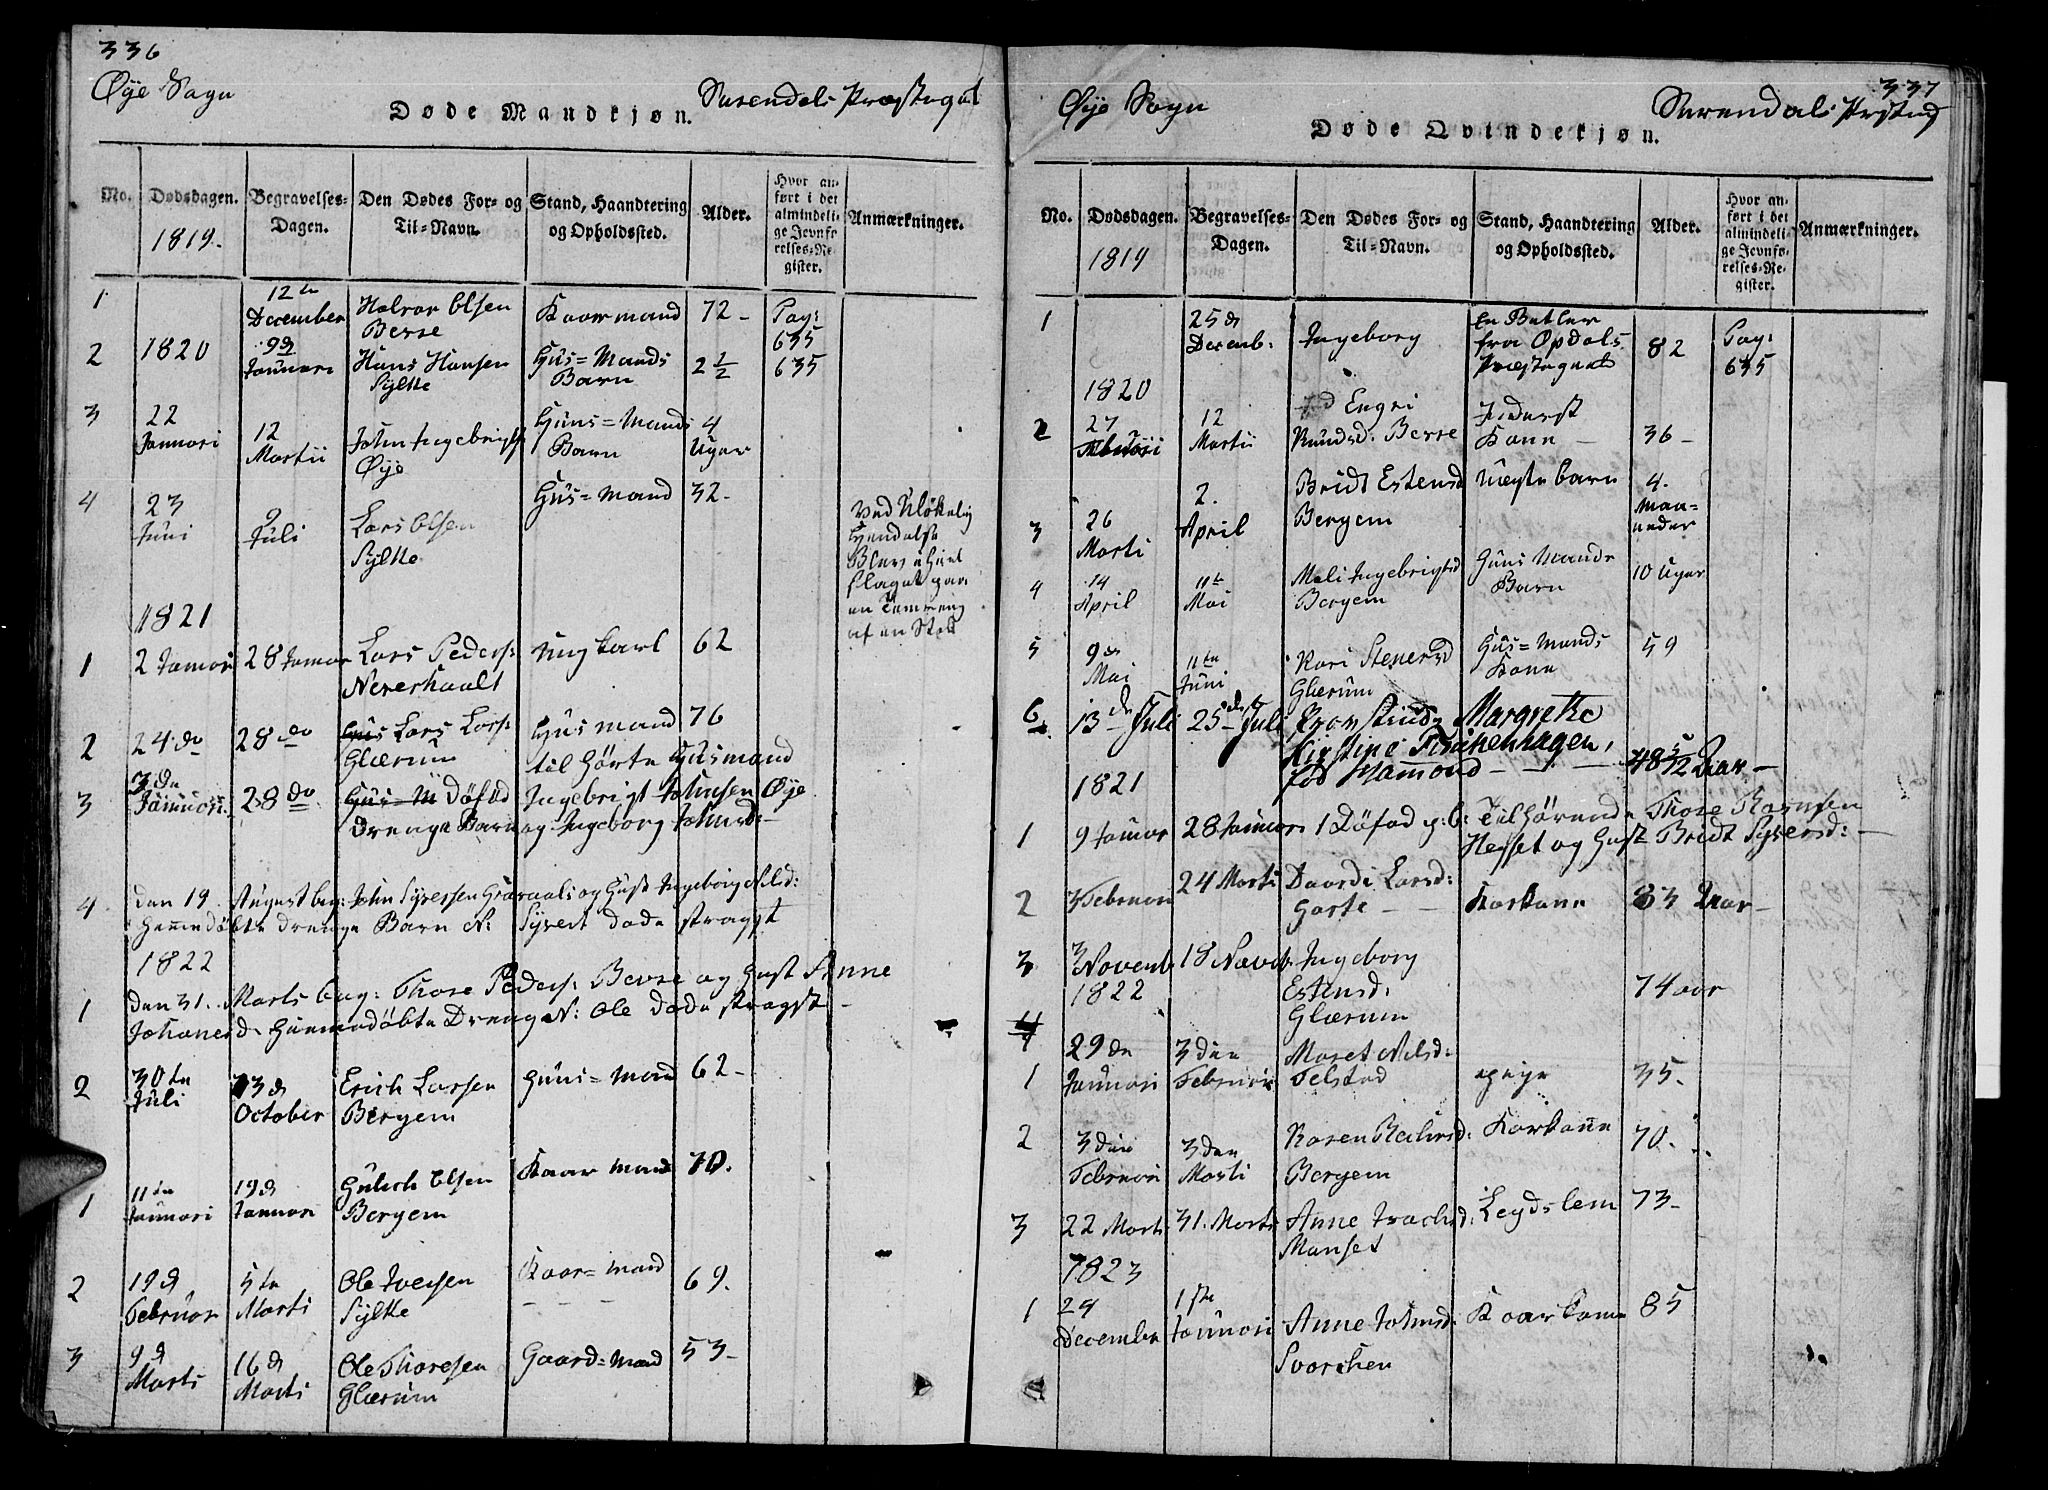 336
Øye Sogn
Døde Mandkjøn.
Surendals Præstegiel
No.
Dødsdagen.
1819.
Begravelses-
Dagen.
Den Dødes For- og
Til-Navn.
Stand, Haandtering
og Opholdssted.
Alder.
Hvor an-
ført i det
almindeli-
ge Jevnfø-
relses-Re-
gister.
Anmærkninger.
1 12te December Halvor Olsen Berse Kaarmand 72 - Pag: 635
1820
2 9d Januari Hans Hansen Sylte Huus=Mands Barn 2 1/2 635
3 22 Januari 12 Martii John Ingebrigts Øye Huus=Mands Barn 4 Uger
4 23 Juni 9 Juli Lars Olsen Sylte Huus=Mand 32-
Ved Ulökelig
Hendelse
Blev ihiel
slaget paa
en Temring
af en Stok
1821
1 2 Januari 28 Januar Lars Peders: Neverhaalt ung karl 62
2 24 do 28 do Lars Lars: Glærum Huusmand 76
3 3de Januari 28 do Döfød Drenge Barn
til Hörte Husmand
Ingebrigt Johnsen Øye
og Ingeborg Johnsd:
4 den 19 August beg: John Syversen Gravaals og Hust Ingeborg Nilsd:
hiemmedöbte Drenge Barn N: Syvert døde straxt
1822
1 den 31. Marts beg: Thore Peders: Berse og Hust Anne
Johanesd. hiemmedöbte Dreng N: Ole døde straxst -
2 30te Juli 13d October Erich Larsen Bergem Huus=Mand 62-
1 11te Januari 19d Januari Gulich Olsen Bergem Kaar mand 70.
2 19d Februar 5te Marti Ole Iversen Sylte Kaar=mand 69.
3 9d Marts 16d Marts Ole Thoresen Glærum Gaard=Mand 53-
337
Øye Sogn
Døde Qvindekjøn.
Surendals Prstegd
No.
Dødsdagen.
1819
Begravelses-
Dagen.
Den Dødes For- og
Til-Navn.
Stand, Haandtering
og Opholdssted.
Alder.
Hvor an-
ført i det
almindeli-
ge Jevnfø-
relses-Re-
gister.
Anmærkninger.
1 25d Decemb: Ingeborg En Betler fra Opdals Præstegield 82 Pag: 635
1820
2 27 Februari 12 Martii Engri Knudsd: Berse Inderst Kone - 36-
3 26 Marti 2. April Bridt Estensd Bergem Uægte barn 4. Maaneder
4 14 April 11te Mai Mali Ingebrigtsd Bergem Huus Mands Barn 10 Uger
5 9de Mai 11te Juni Kari Stenersd Glærum Huus=Mands Kone 59
6 13de Juli 25de Juli Margrethe
Kirstine Fischenhagen,
fød Hammond - 48 5/12 Aar -
1821
1 9 Januar 28 Januari 1 Döfød p:b: Tilhörende Thore Thoresen
Hesset og Hust Bridt Syversd: -
2 3 Februari 24 Marti Daardi Larsd: Harte - Karkone 83 Aar -
3 3 Novemb 18 Novemb. Ingeborg Estensd: Glærum 74 aar
1822
1 29de Januari 3die Februari Maret Nilsd: Telstad pige 35.
2 3die Februari 3den Marti Karen Bergem Karkone 70.
3 22 Marts 31. Marts Anne Manset Legdslem 73-
1823
1 24 December 1ste Januari Anne Johnsd: Svorchen Kaarkone 85